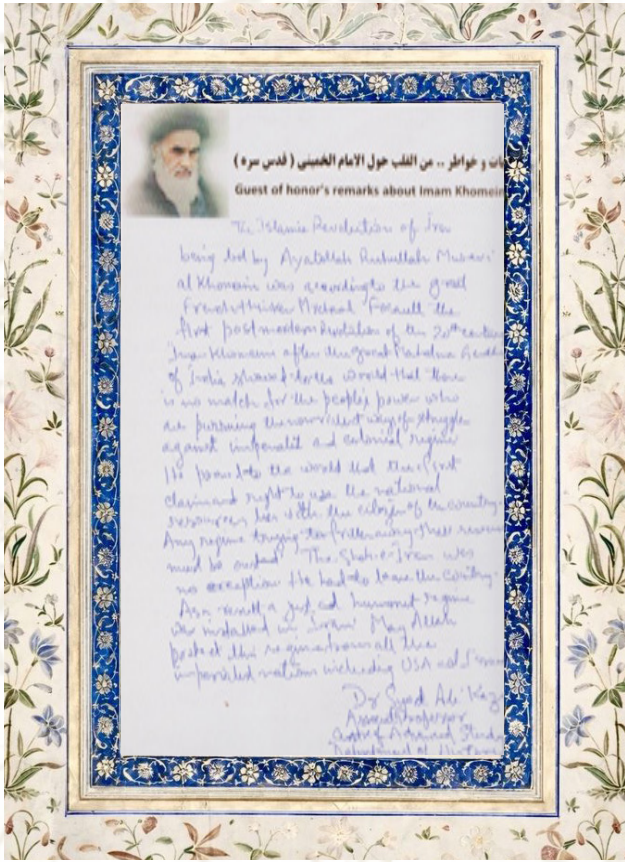 و خواطر .. من القلب حول الامام الخميني ( قدس سره )
Guest of honor's remarks about Imam Khomein
The Islamic Revolution of Iran
being led by Ayatollah Ruhullah Musavi
al Khomeini was according to the great
French thinker Michael Foucault the
first postmodern Revolution of the 20th century
Imam Khomeini after the great Mahatma Gandhi
of India showed to the world that there
is no match for the people's power who
are pursuing the nonviolent way of struggle
against imperialist and colonial regime
He proved to the world that the first
claim and right to use the national
resources lies with the citizen of the country.
Any regime trying to
must be ousted. The Shah of Iran was
no exception He had to leave the country.
As a result a just and humanist regime
was installed in Iran. May Allah
protect this regime from all the
imperialist nations including USA and Israel
Dr Syed Ali Kaz
Professor
Centre of Advanced Study
Department of History